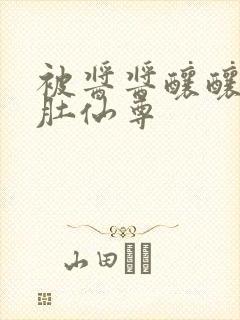 被酱酱酿酿
肚仙尊
山田